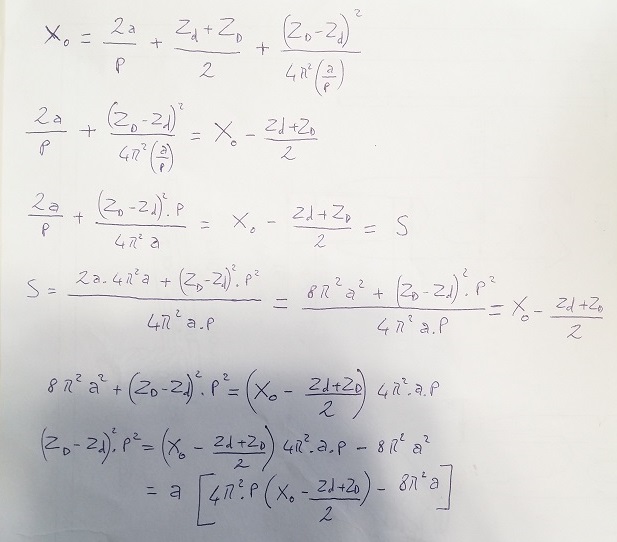 X₀ = 2a/p + (Zd + ZD)/2 + (ZD - Zd)²/(4π²(a/p))
2a/p + (ZD - Zd)²/(4π²(a/p)) = X₀ - (Zd + ZD)/2
2a/p + (ZD - Zd)².p/(4π² a) = X₀ - (Zd + ZD)/2 = S
S = (2a.4π²a + (ZD - Zd)².p²)/(4π² a.p) = (8π² a² + (ZD - Zd)².p²)/(4π² a.p) = X₀ - (Zd + ZD)/2
8π² a² + (ZD - Zd)².p² = (X₀ - (Zd + ZD)/2) 4π².a.p
(ZD - Zd)².p² = (X₀ - (Zd + ZD)/2) 4π².a.p - 8π² a²
= a [4π².p (X₀ - (Zd + ZD)/2) - 8π² a]